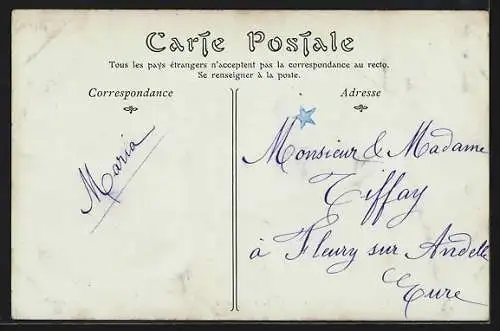 Carte Postale
Tous les pays étrangers n'acceptent pas la correspondance au recto.
Se renseigner à la poste.
Correspondance
Maria
Adresse
Monsieur & Madame
Tiffay
à Fleury sur Andelle
Eure